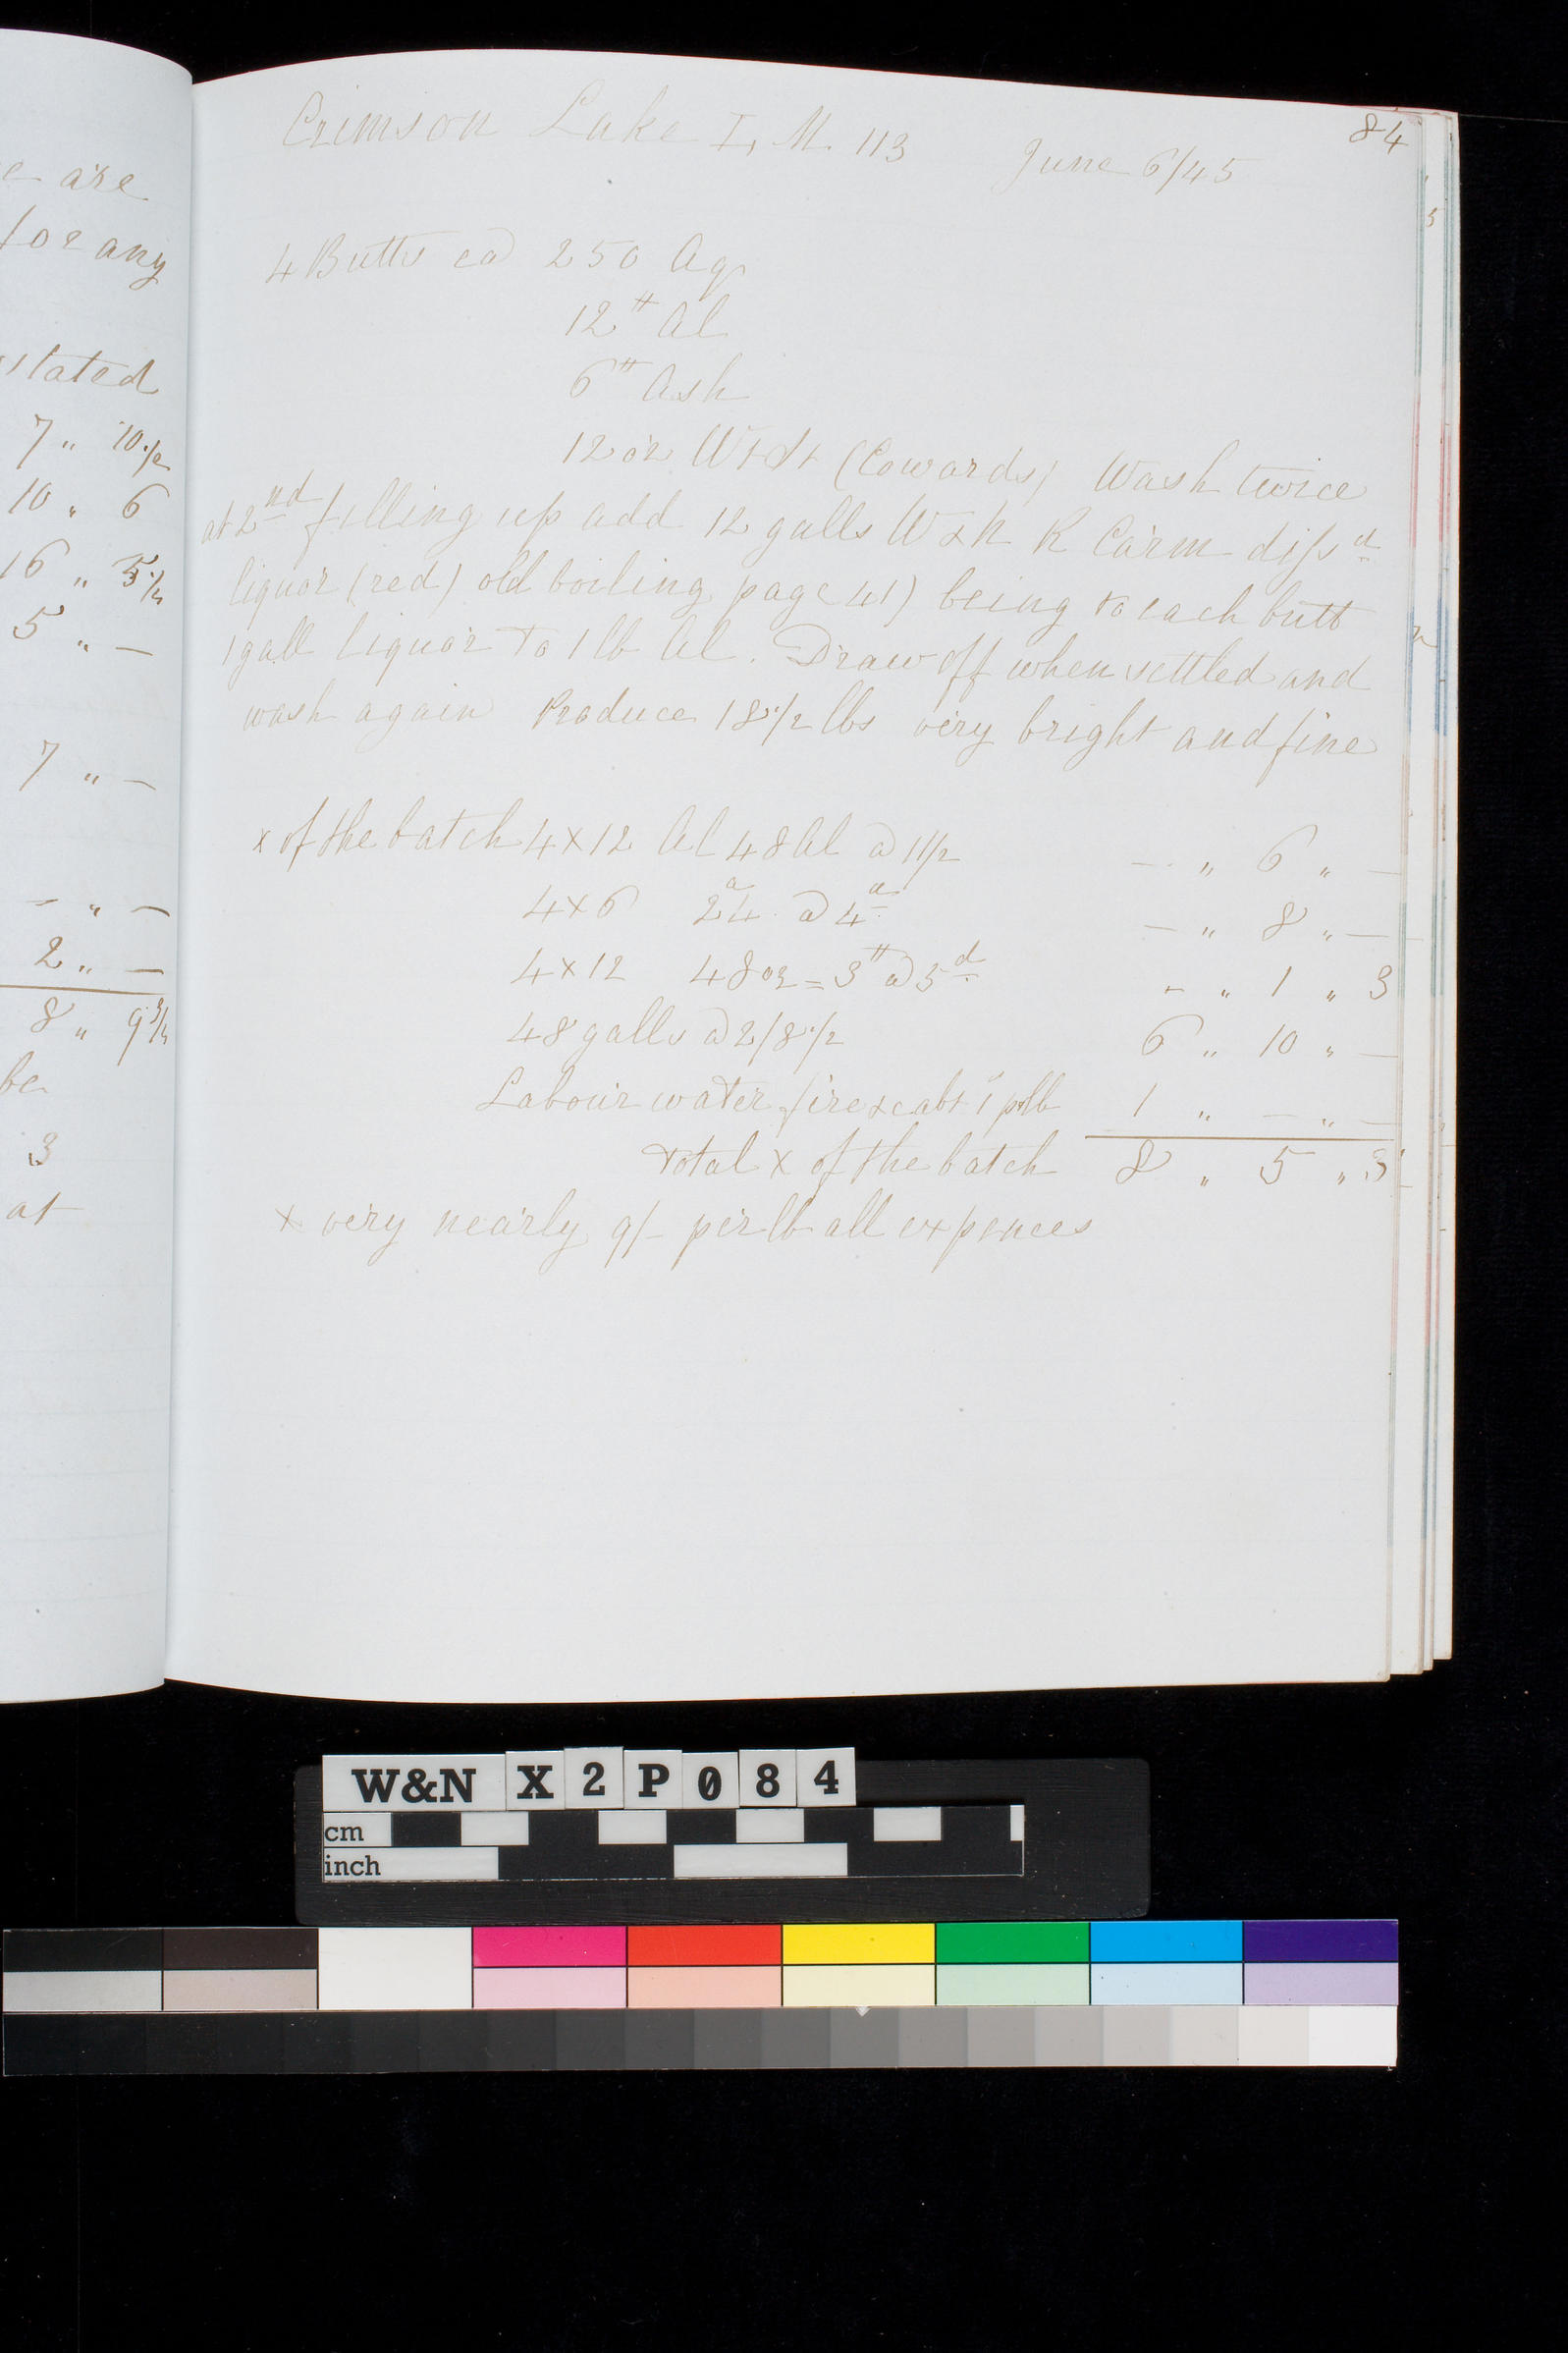 e are
for any
stated
7 " 10 1/2
10 " 6
16 " 5 1/4
5 " —
7 " —
— " —
2 " —
8 " 9 3/4
be
3
at
84
Crimson Lake I, M. 113 June 6/45
4 Butts ea 250 Aq
12 # Al
6 # Ash
12 oz W+St (Cowards) Wash twice
at 2nd filling up add 12 galls W&N R Carm dissd
liquor (red) old boiling page 41) being to each butt
1 gall liquor to 1 lb Al. Draw off when settled and
wash again Produce 18 1/2 lbs very bright and fine
x of the batch 4x12 Al 48 Al @ 1 1/2 — " 6 " —
4x6 24 @ 4d — " 8 " —
4x12 48 oz = 3 # @ 5d — " 1 " 3
48 galls @ 2/8 1/2 6 " 10 " —
Labour water fire &c abt 1/ p lb 1 " — " —
total x of the batch 8 " 5 " 3
x very nearly 9/- per lb all expences
W&N X2P084
cm
inch